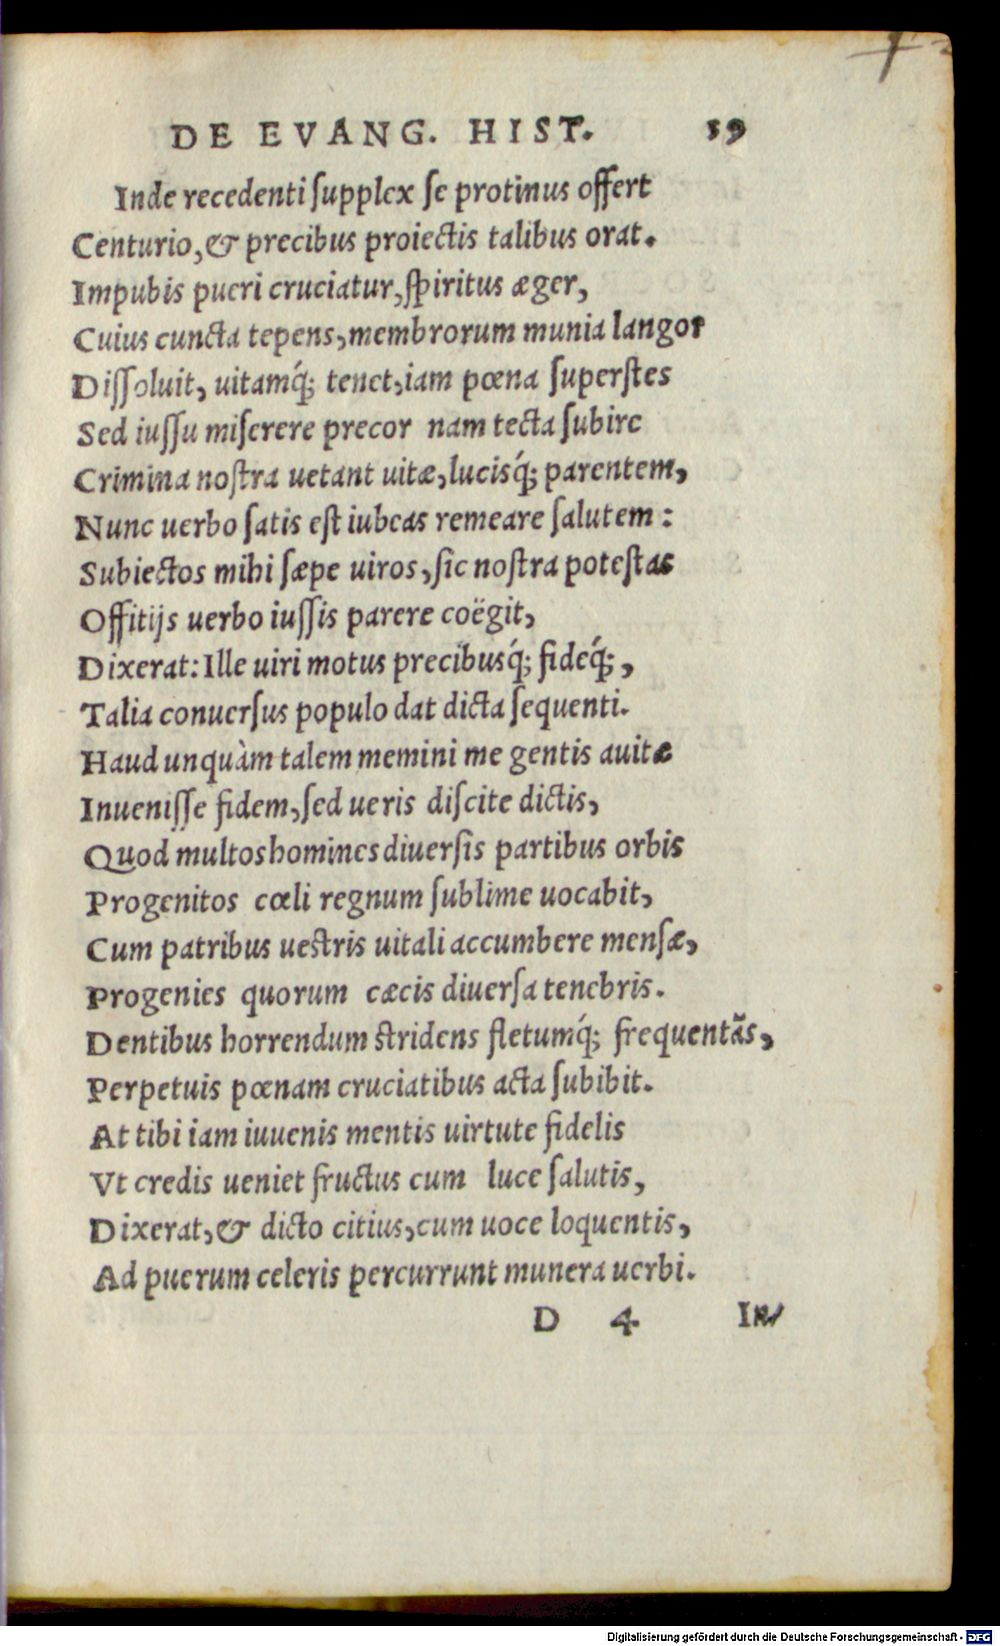 DE EVANG. HIST. 19
Inde recedenti ſupplex ſe protinus offert
Centurio, & precibus proiectis talibus orat.
Impubis pueri cruciatur, ſpiritus æger,
Cuius cuncta tepens, membrorum munia langor
Diſſoluit, uitamq́; tenet, iam pœna ſuperſtes
Sed iuſſu miſerere precor nam tecta ſubire
Crimina noſtra uetant uitæ, lucisq́; parentem,
Nunc uerbo ſatis eſt iubeas remeare ſalutem:
Subiectos mihi ſæpe uiros, ſic noſtra poteſtas
Offitijs uerbo iuſſis parere coëgit,
Dixerat: Ille uiri motus precibusq́; fideq́;,
Talia conuerſus populo dat dicta ſequenti.
Haud unquàm talem memini me gentis auitæ
Inueniſſe fidem, ſed ueris diſcite dictis,
Quod multos homines diuerſis partibus orbis
Progenitos cœli regnum ſublime uocabit,
Cum patribus ueſtris uitali accumbere menſæ,
Progenies quorum cæcis diuerſa tenebris.
Dentibus horrendum ſtridens fletumq́; frequentãs,
Perpetuis pœnam cruciatibus acta ſubibit.
At tibi iam iuuenis mentis uirtute fidelis
Vt credis ueniet fructus cum luce ſalutis,
Dixerat, & dicto citius, cum uoce loquentis,
Ad puerum celeris percurrunt munera uerbi.
D 4 In
Digitalisierung gefördert durch die Deutsche Forschungsgemeinschaft - DFG